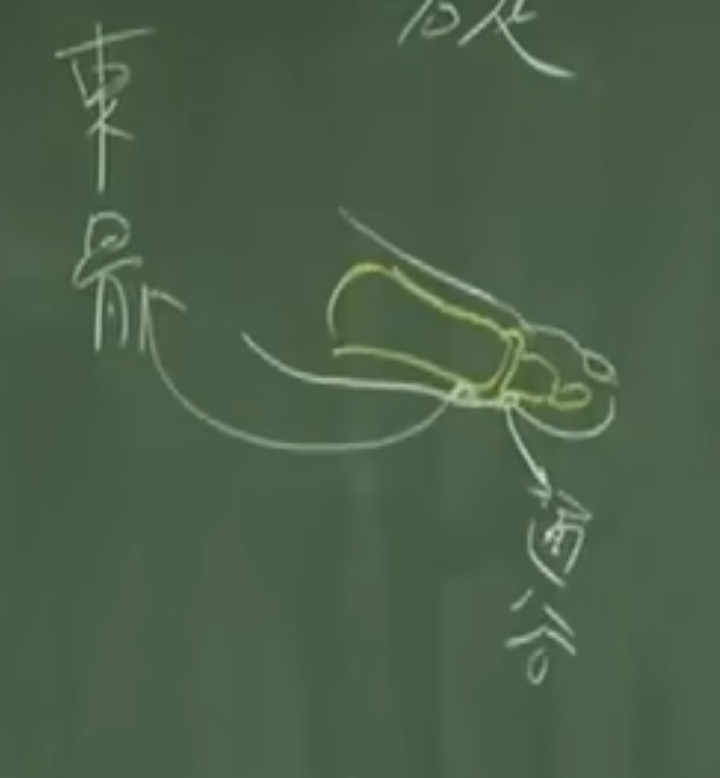 束骨
通谷